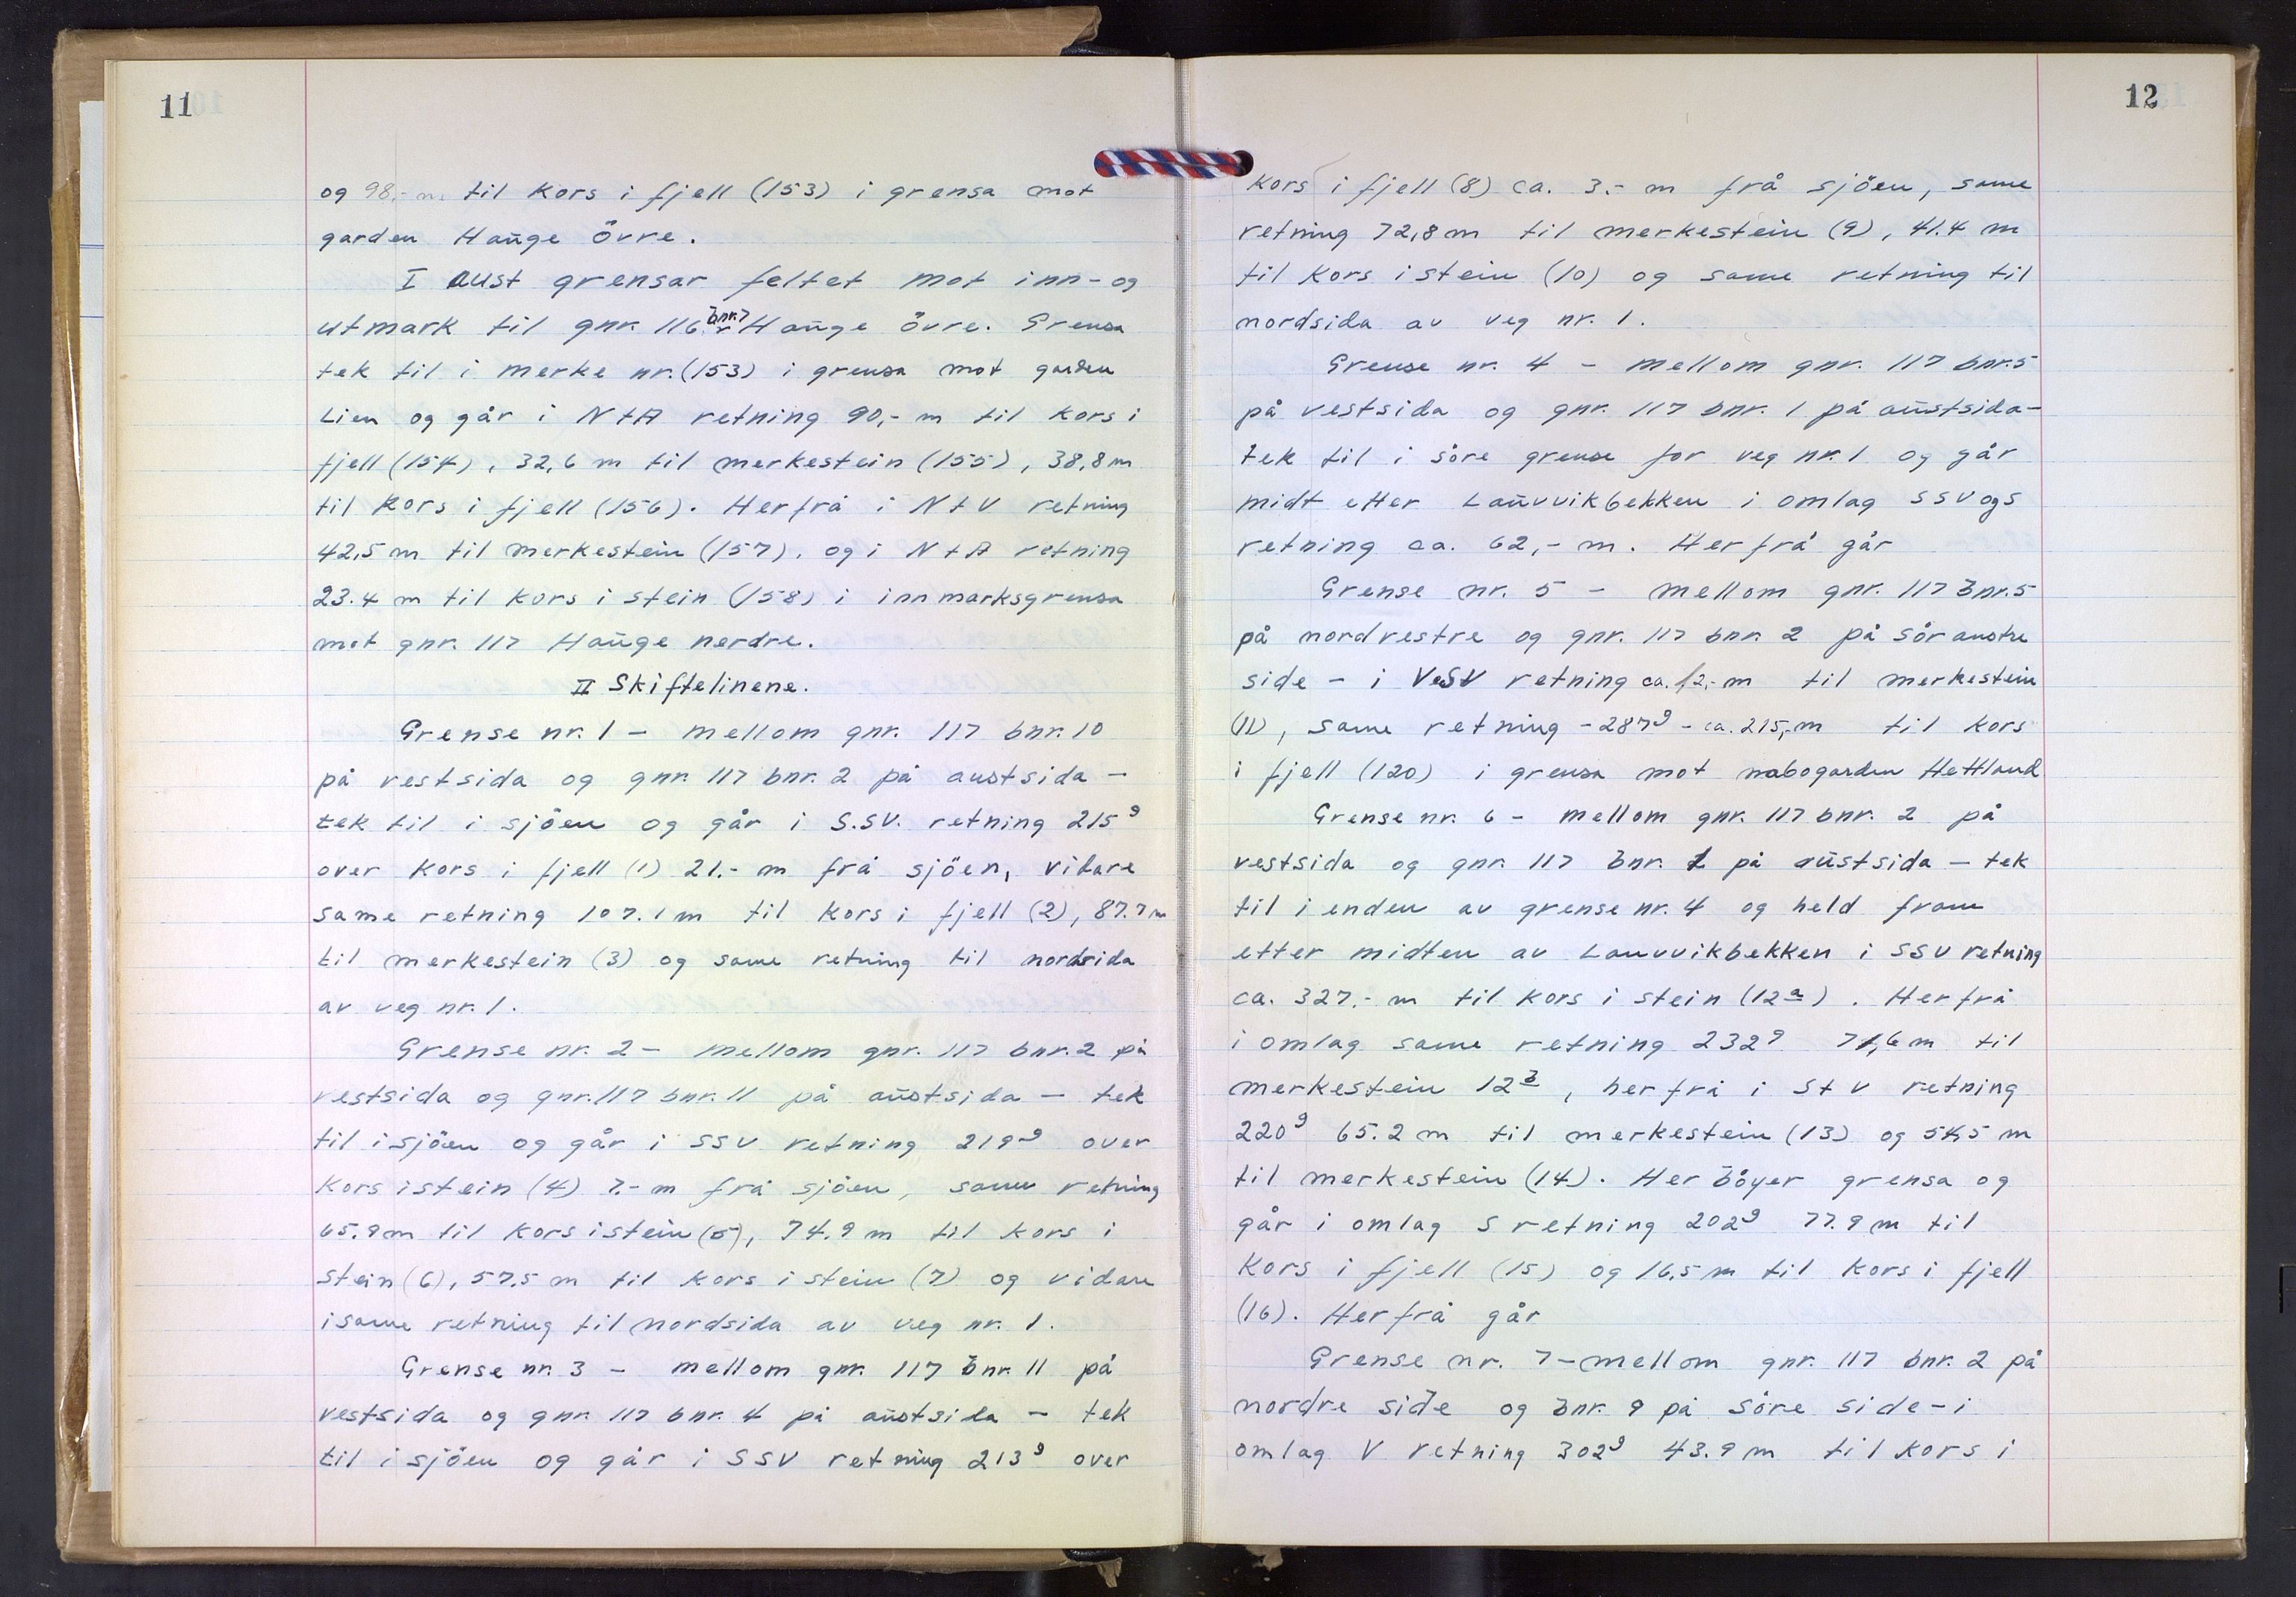 11
og 98,- m til kors i fjell (153) i grensa mot
garden Hauge Övre.
I aust grensar feltet mot inn- og
utmark til gnr. 116 bnr. 7 Hauge övre. Grensa
tek til i merke nr. (153) i grensa mot garden
Lien og går i NtA retning 90,- m til kors i
fjell (154), 32,6 m til merkestein (155), 38,8 m
til kors i fjell (156). Herfrå i NtV retning
42,5 m til merkestein (157), og i NtA retning
23.4 m til kors i stein (158) i innmarksgrensa
mot gnr. 117 Hauge nerdre.
II Skiftelinene.
Grense nr. 1 - mellom gnr. 117 bnr. 10
på vestsida og gnr. 117 bnr. 2 på austsida -
tek til i sjöen og går i S.SV. retning 215g
over kors i fjell (1) 21.- m frå sjöen, vidare
same retning 107.1 m til kors i fjell (2), 87.7 m
til merkestein (3) og same retning til nordsida
av veg nr. 1.
Grense nr. 2 - mellom gnr. 117 bnr. 2 på
vestsida og gnr. 117 bnr. 11 på austsida - tek
til i sjöen og går i SSV retning 219g over
kors i stein (4) 7.- m frå sjöen, same retning
65.9 m til kors i stein (5), 74.9 m til kors i
stein (6), 57.5 m til kors i stein (7) og vidare
i same retning til nordsida av veg nr. 1.
Grense nr. 3 - mellom gnr. 117 bnr. 11 på
vestsida og gnr. 117 bnr. 4 på austsida - tek
til i sjöen og går i SSV retning 213g over
12
kors i fjell (8) ca. 3.- m frå sjöen, same
retning 72,8 m til merkestein (9), 41.4 m
til kors i stein (10) og same retning til
nordsida av veg nr. 1.
Grense nr. 4 - mellom gnr. 117 bnr. 5
på vestsida og gnr. 117 bnr. 1 på austsida -
tek til i söre grense for veg nr. 1 og går
midt etter Lauvvikbekken i omlag SSV og S
retning ca. 62,- m. Herfrå går
Grense nr. 5 - mellom gnr. 117 bnr. 5
på nordvestre og gnr. 117 bnr. 2 på söraustre
side - i VSV retning ca. 12,- m til merkestein
(11), same retning - 287g - ca. 215,- m til kors
i fjell (120) i grensa mot nabogarden Hettland
Grense nr. 6 - mellom gnr. 117 bnr. 2 på
vestsida og gnr. 117 bnr. 1 på austsida - tek
til i enden av grense nr. 4 og held fram
etter midten av Lauvvikbekken i SSV retning
ca. 327.- m til kors i stein (12a). Herfrå
i omlag same retning 232g 71,6 m til
merkestein 12b, herfrå i StV retning
220g 65.2 m til merkestein (13) og 54,5 m
til merkestein (14). Her böyer grensa og
går i omlag S retning 202g 77.9 m til
kors i fjell (15) og 16,5 m til kors i fjell
(16). Herfrå går
Grense nr. 7 - mellom gnr. 117 bnr. 2 på
nordre side og bnr. 9 på söre side - i
omlag V retning 302g 43.9 m til kors i